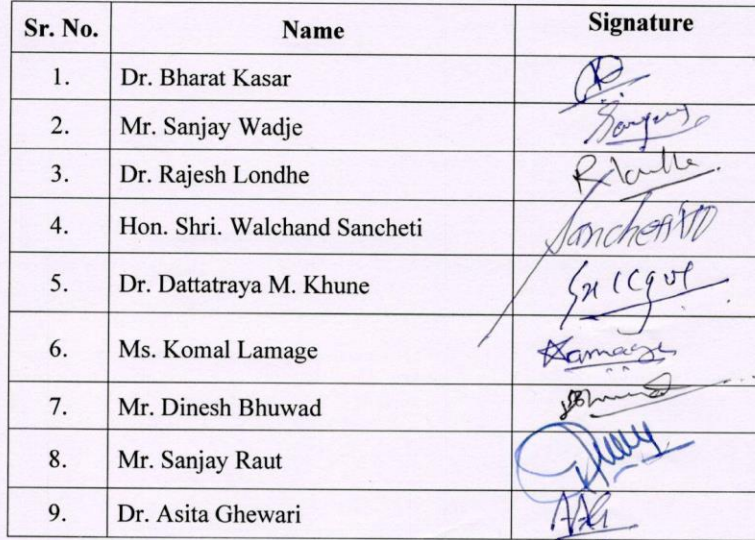 Sr. No. Name Signature
1. Dr. Bharat Kasar
2. Mr. Sanjay Wadje Sanjay
3. Dr. Rajesh Londhe
4. Hon. Shri. Walchand Sancheti Sancheti
5. Dr. Dattatraya M. Khune
6. Ms. Komal Lamage
7. Mr. Dinesh Bhuwad
8. Mr. Sanjay Raut
9. Dr. Asita Ghewari